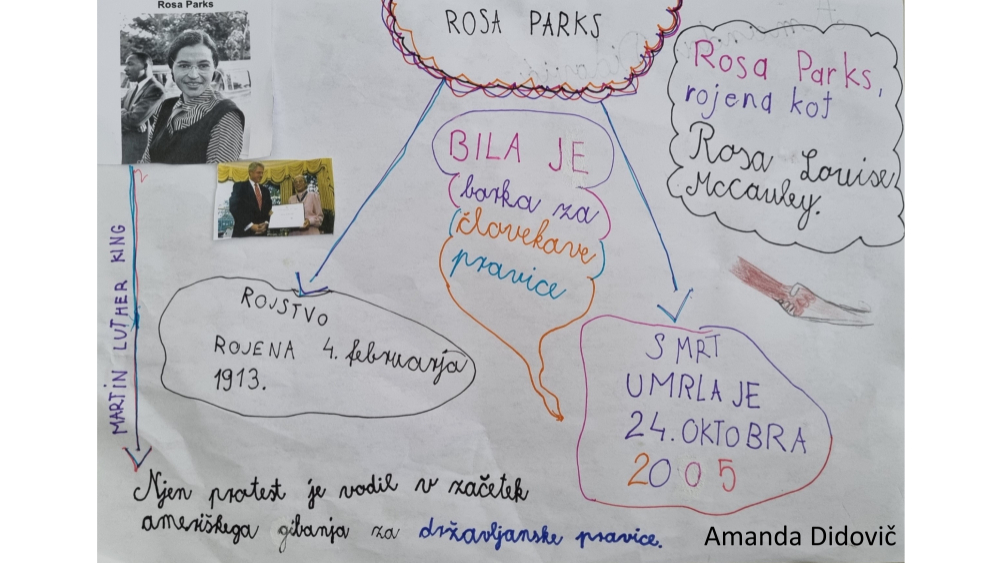 Rosa Parks
ROSA PARKS
Rosa Parks,
rojena kot
Rosa Louise
McCauley.
BILA JE
borka za
človekave
pravice
MARTIN LUTHER KING
ROJSTVO
ROJENA 4. februarja
1913.
SMRT
UMRLA JE
24. OKTOBRA
2005
Njen protest je vodil v začetek
ameriškega gibanja za državljanske pravice.
Amanda Didovič